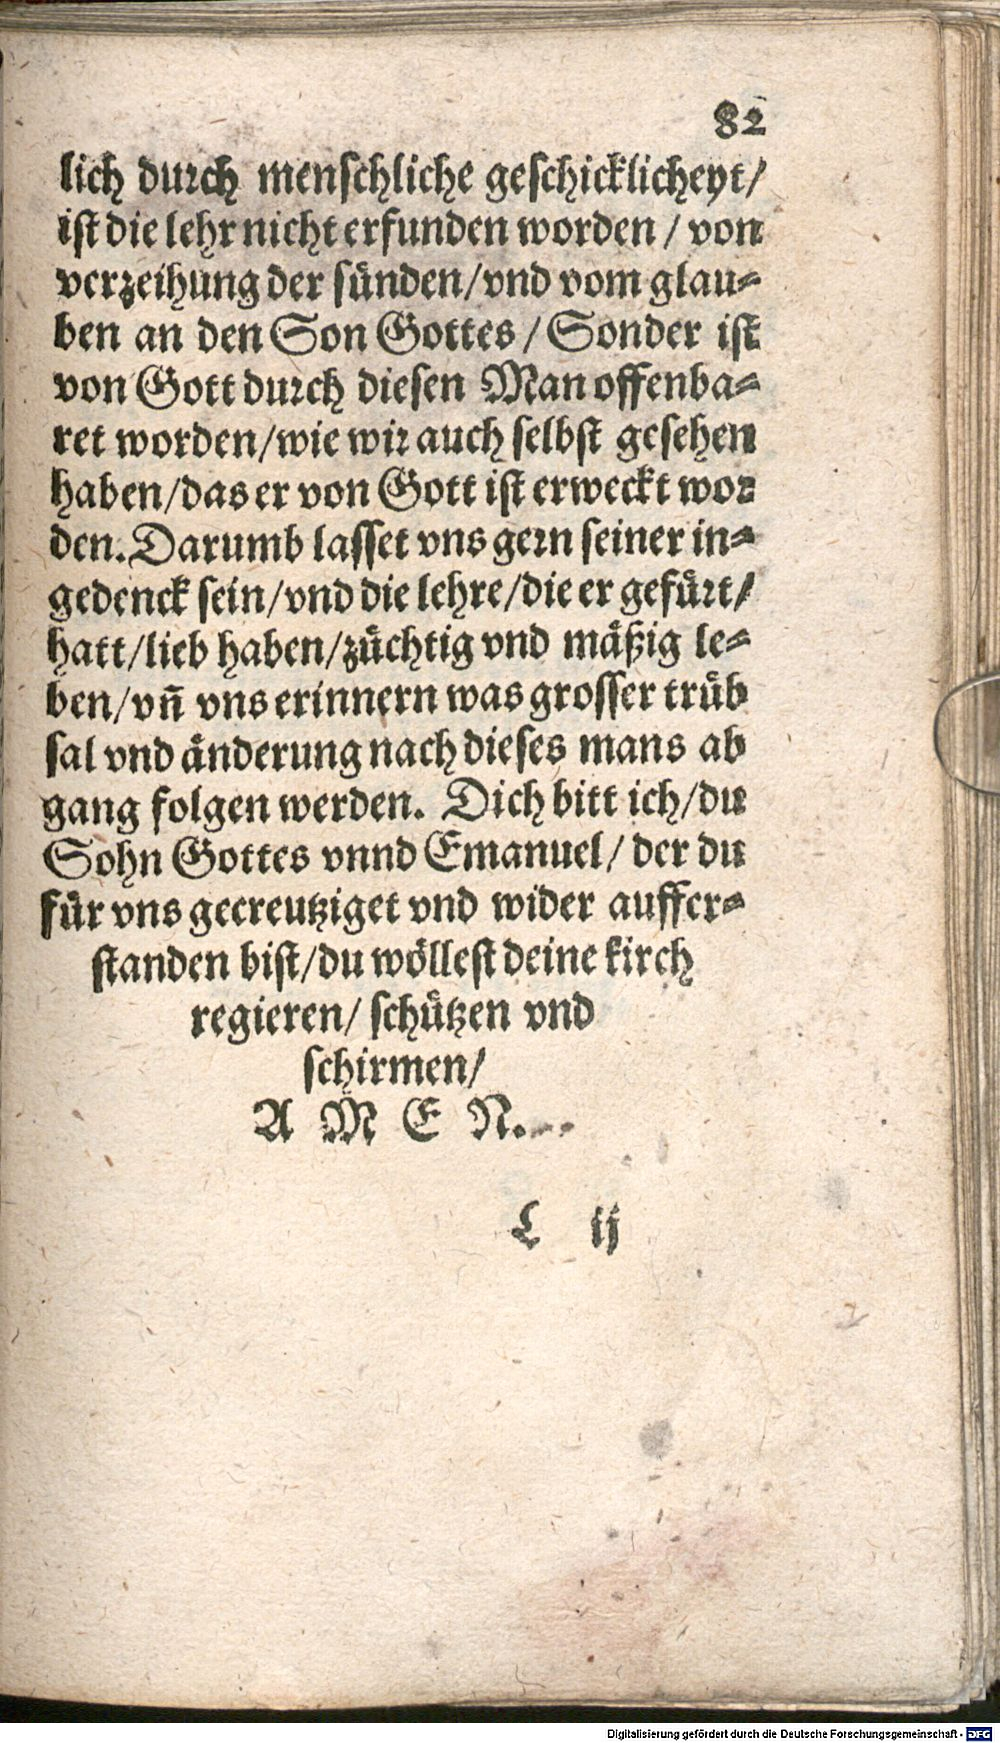 82
lich durch menschliche geschicklicheyt/
ist die lehr nicht erfunden worden / von
verzeihung der sünden/vnd vom glau-
ben an den Son Gottes / Sonder ist
von Gott durch diesen Man offenba-
ret worden/wie wir auch selbst gesehen
haben/das er von Gott ist erweckt wor
den. Darumb lasset vns gern seiner in-
gedenck sein/vnd die lehre/die er gefürt/
hatt/lieb haben/züchtig vnd mäßig le-
ben/vn̄ vns erinnern was grosser trüb
sal vnd änderung nach dieses mans ab
gang folgen werden. Dich bitt ich/du
Sohn Gottes vnnd Emanuel/ der du
für vns gecreutziget vnd wider auffer-
standen bist/du wöllest deine kirch
regieren/ schützen vnd
schirmen/
A M E N.
L ij
Digitalisierung gefördert durch die Deutsche Forschungsgemeinschaft - DFG